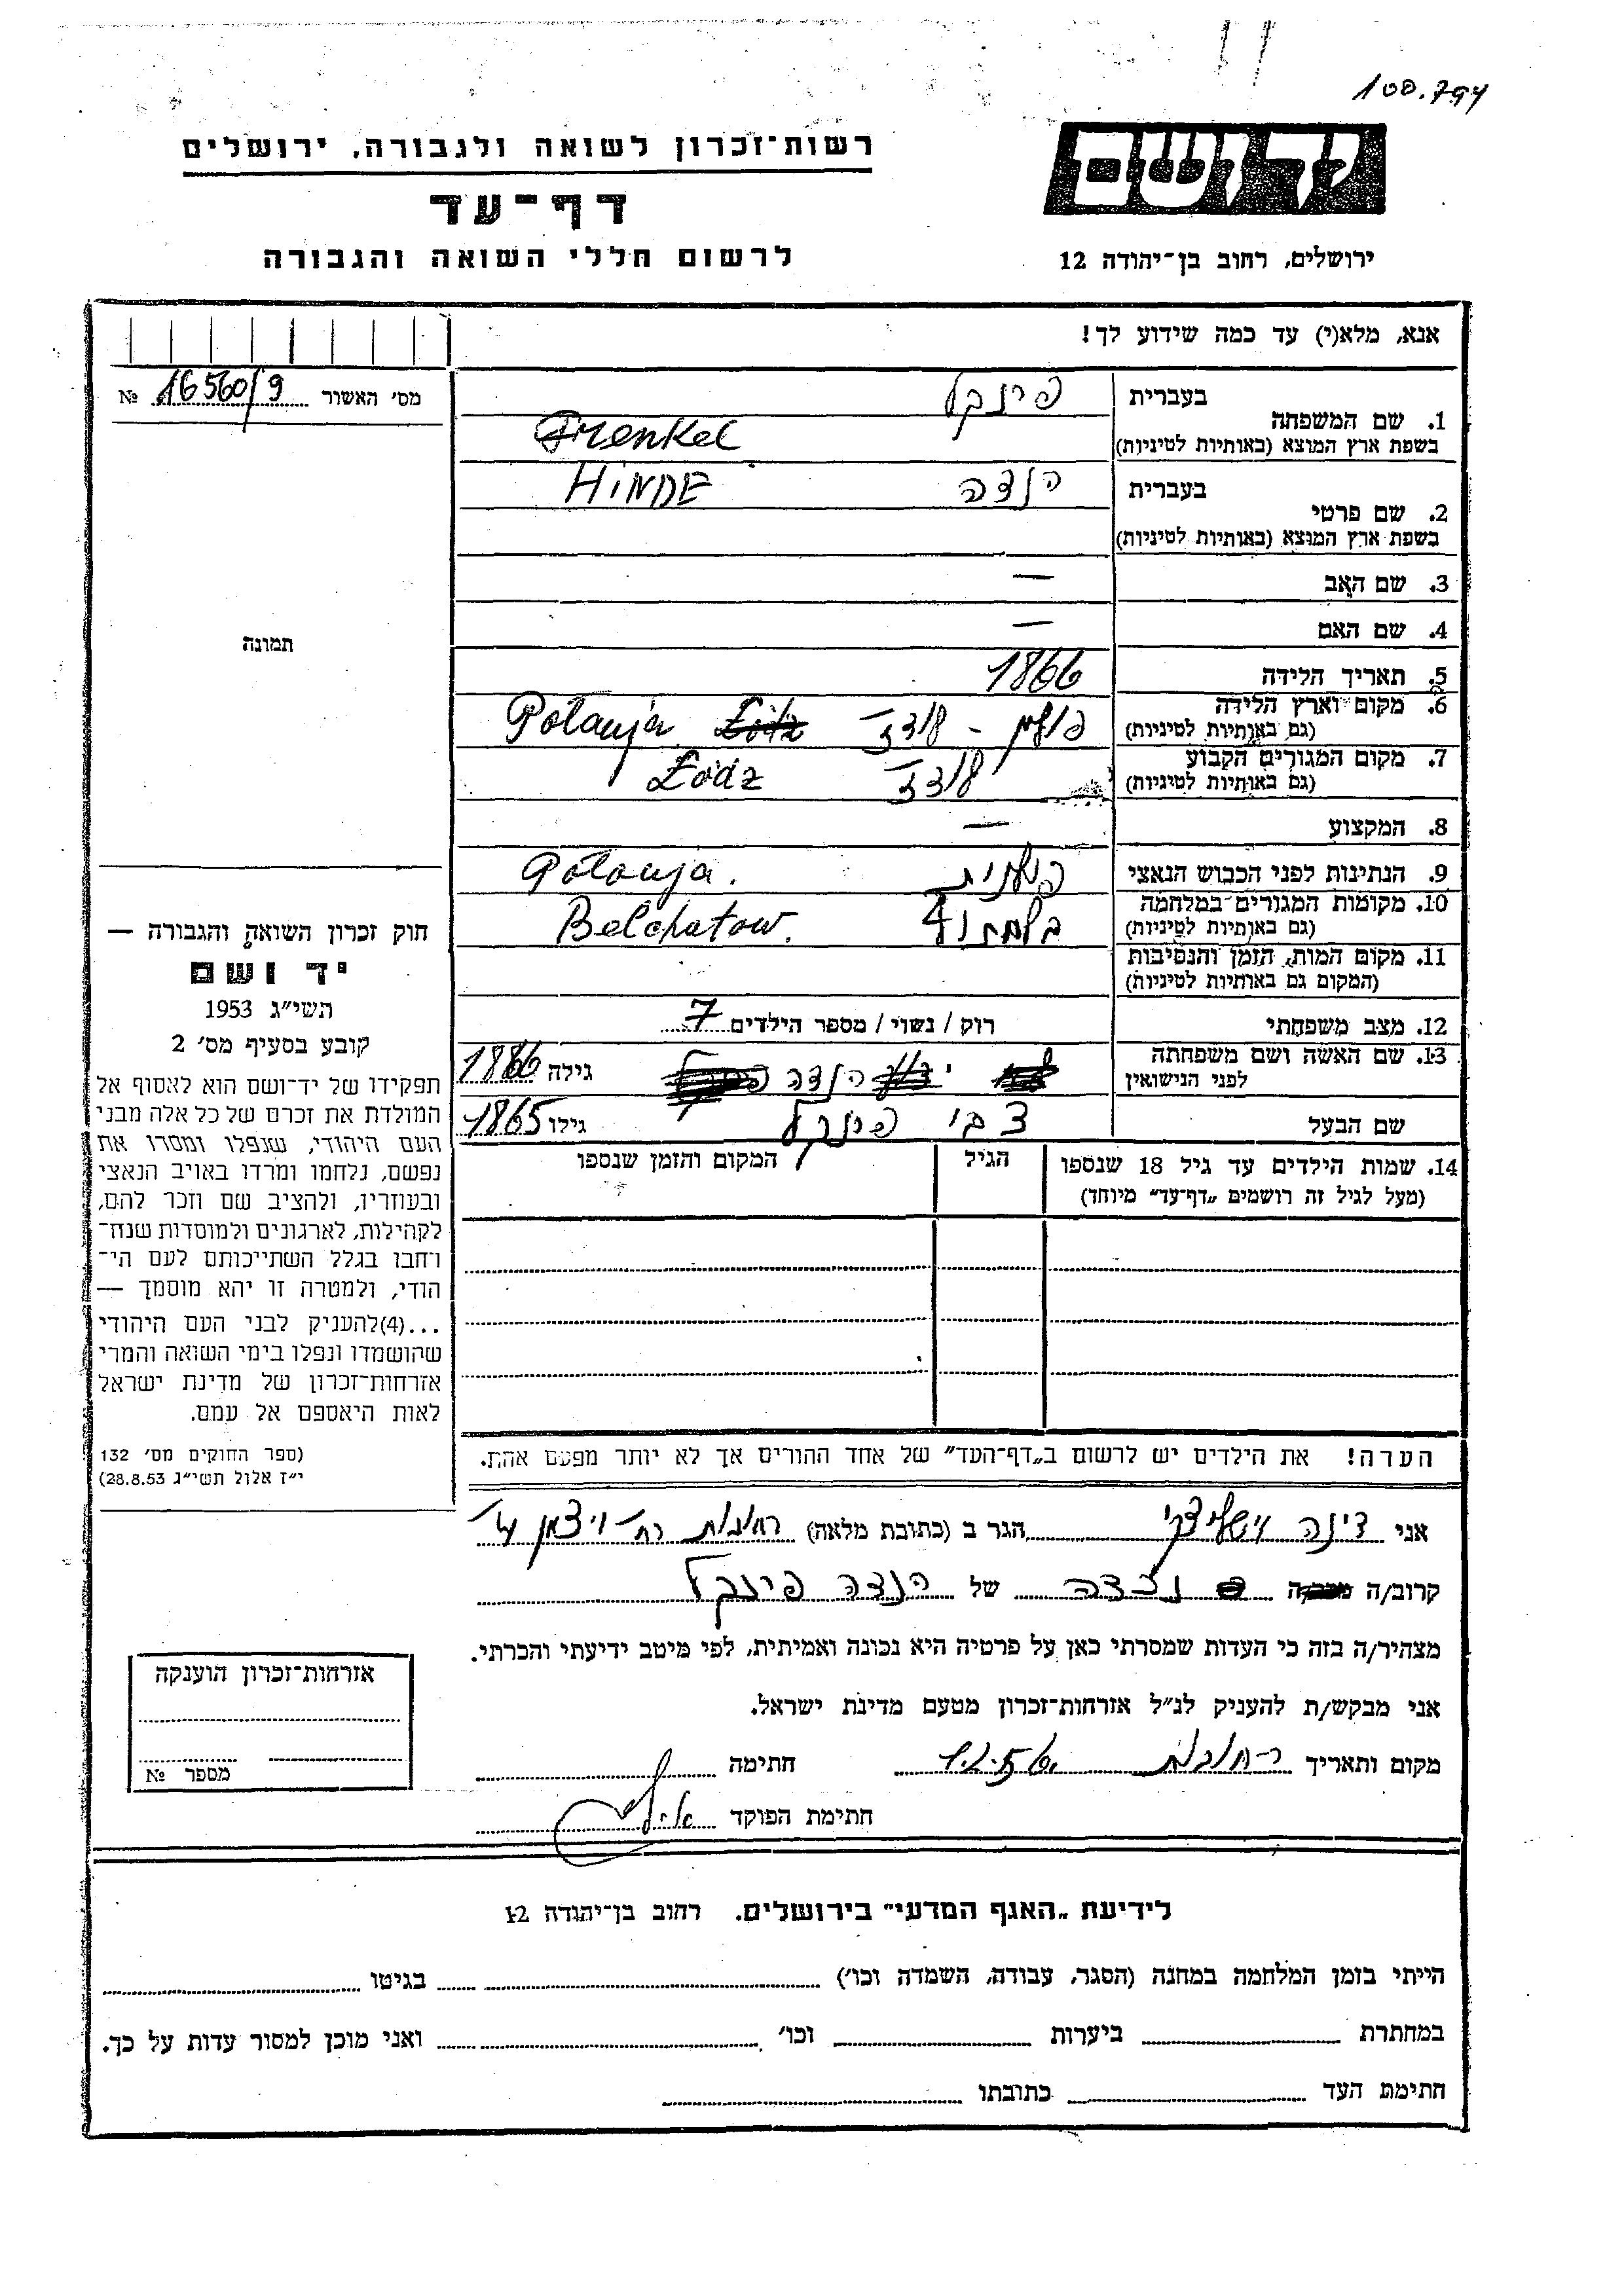 100.794
רשות־זכרון לשואה ולגבורה, ירושלים
דף־עד
לרשום חללי השואה והגבורה
יד ושם
ירושלים, רחוב בן־יהודה 12
אנא, מלא(י) עד כמה שידוע לך!
מס׳ האשור 16560/9 №
1. שם המשפחה
בעברית פרנקל
בשפת ארץ המוצא (באותיות לטיניות) Frenkel
2. שם פרטי
בעברית הנדה HiNDE
בשפת ארץ המוצא (באותיות לטיניות)
3. שם האב —
4. שם האם —
5. תאריך הלידה 1866
6. מקום וארץ הלידה פולין - לודז׳ Łódz Polanja
(גם באותיות לטיניות)
7. מקום המגורים הקבוע לודז׳ Łódz
(גם באותיות לטיניות)
8. המקצוע —
9. הנתינות לפני הכבוש הנאצי פולנית Polanja.
10. מקומות המגורים במלחמה Belchatow.
(גם באותיות לטיניות)
11. מקום המות, הזמן והנסיבות
(המקום גם באותיות לטיניות)
12. מצב משפחתי רוק / נשוי / מספר הילדים 7
13. שם האשה ושם משפחתה
לפני הנישואין הנדה גילה 1866
שם הבעל צבי פרנקל גילו 1865
14. שמות הילדים עד גיל 18 שנספו
(מעל לגיל זה רושמים „דף־עד” מיוחד)
הגיל
המקום והזמן שנספו
תמונה
חוק זכרון השואה והגבורה —
יד ושם
תשי״ג 1953
קובע בסעיף מס׳ 2
תפקידו של יד־ושם הוא לאסוף אל
המולדת את זכרם של כל אלה מבני
העם היהודי, שנפלו ומסרו את
נפשם, נלחמו ומרדו באויב הנאצי
ובעוזריו, ולהציב שם וזכר להם,
לקהילות, לארגונים ולמוסדות שנח־
רחבו בגלל השתייכותם לעם הי־
הודי, ולמטרה זו יהא מוסמך —
...(4)להעניק לבני העם היהודי
שהושמדו ונפלו בימי השואה והמרי
אזרחות־זכרון של מדינת ישראל
לאות היאספם אל עמם.
(ספר החוקים מס׳ 132
י״ז אלול תשי״ג 28.8.53)
הערה! את הילדים יש לרשום ב„דף־העד” של אחד ההורים אך לא יותר מפעם אחת.
אני דינה הגר ב (כתובת מלאה) רחובות רח׳ ויצמן
קרוב/ה נכדה של הנדה פרנקל
מצהיר/ה בזה כי העדות שמסרתי כאן על פרטיה היא נכונה ואמיתית, לפי מיטב ידיעתי והכרתי.
אני מבקש/ת להעניק לנ״ל אזרחות־זכרון מטעם מדינת ישראל.
מקום ותאריך רחובות חתימה
חתימת הפוקד
אזרחות־זכרון הוענקה
מספר №
לידיעת „האגף המדעי” בירושלים. רחוב בן־יהודה 12
הייתי בזמן המלחמה במחנה (הסגר, עבודה, השמדה וכו׳) בגיטו
במחתרת ביערות וכו׳ ואני מוכן למסור עדות על כך.
חתימת העד כתובתו